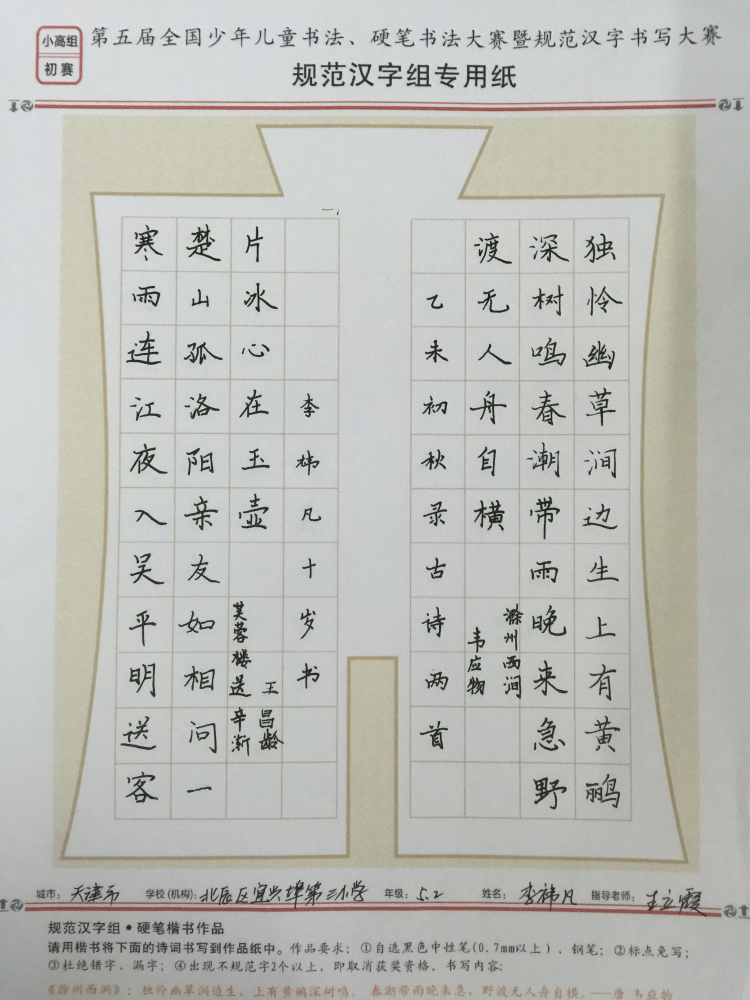 小高组
初赛
第五届全国少年儿童书法、硬笔书法大赛暨规范汉字书写大赛
规范汉字组专用纸
独怜幽草涧边生上有黄鹂
深树鸣春潮带雨晚来急野
渡无人舟自横
滁州西涧
韦应物
乙未初秋录古诗两首
寒雨连江夜入吴平明送客
楚山孤洛阳亲友如相问一
片冰心在玉壶
芙蓉楼送辛渐
王昌龄
李祎凡十岁书
城市：天津市 学校(机构)：北辰区宜兴埠第三小学 年级：5.2 姓名：李祎凡 指导老师：王立霞
规范汉字组·硬笔楷书作品
请用楷书将下面的诗词书写到作品纸中。作品要求：①自选黑色中性笔(0.7mm以上)，钢笔；②标点免写；
③杜绝错字，漏字；④出现不规范字2个以上，即取消获奖资格。书写内容：
《滁州西涧》：独怜幽草涧边生，上有黄鹂深树鸣。 春潮带雨晚来急，野渡无人舟自横。——唐·韦应物